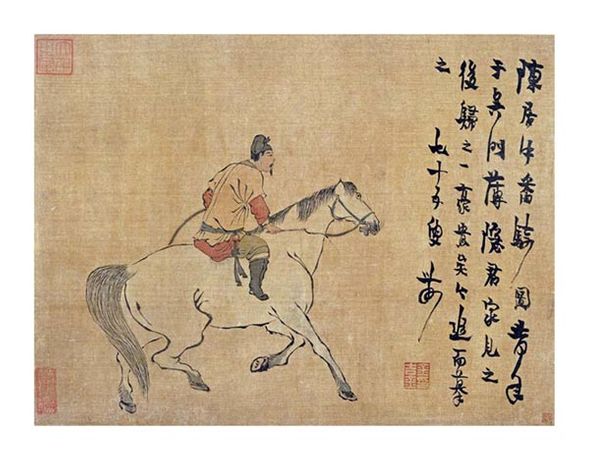 陳居中番騎圖昔年
于吳門薄隱君家見之
後歸之一豪貴矣今追而摹
之
七十五叟